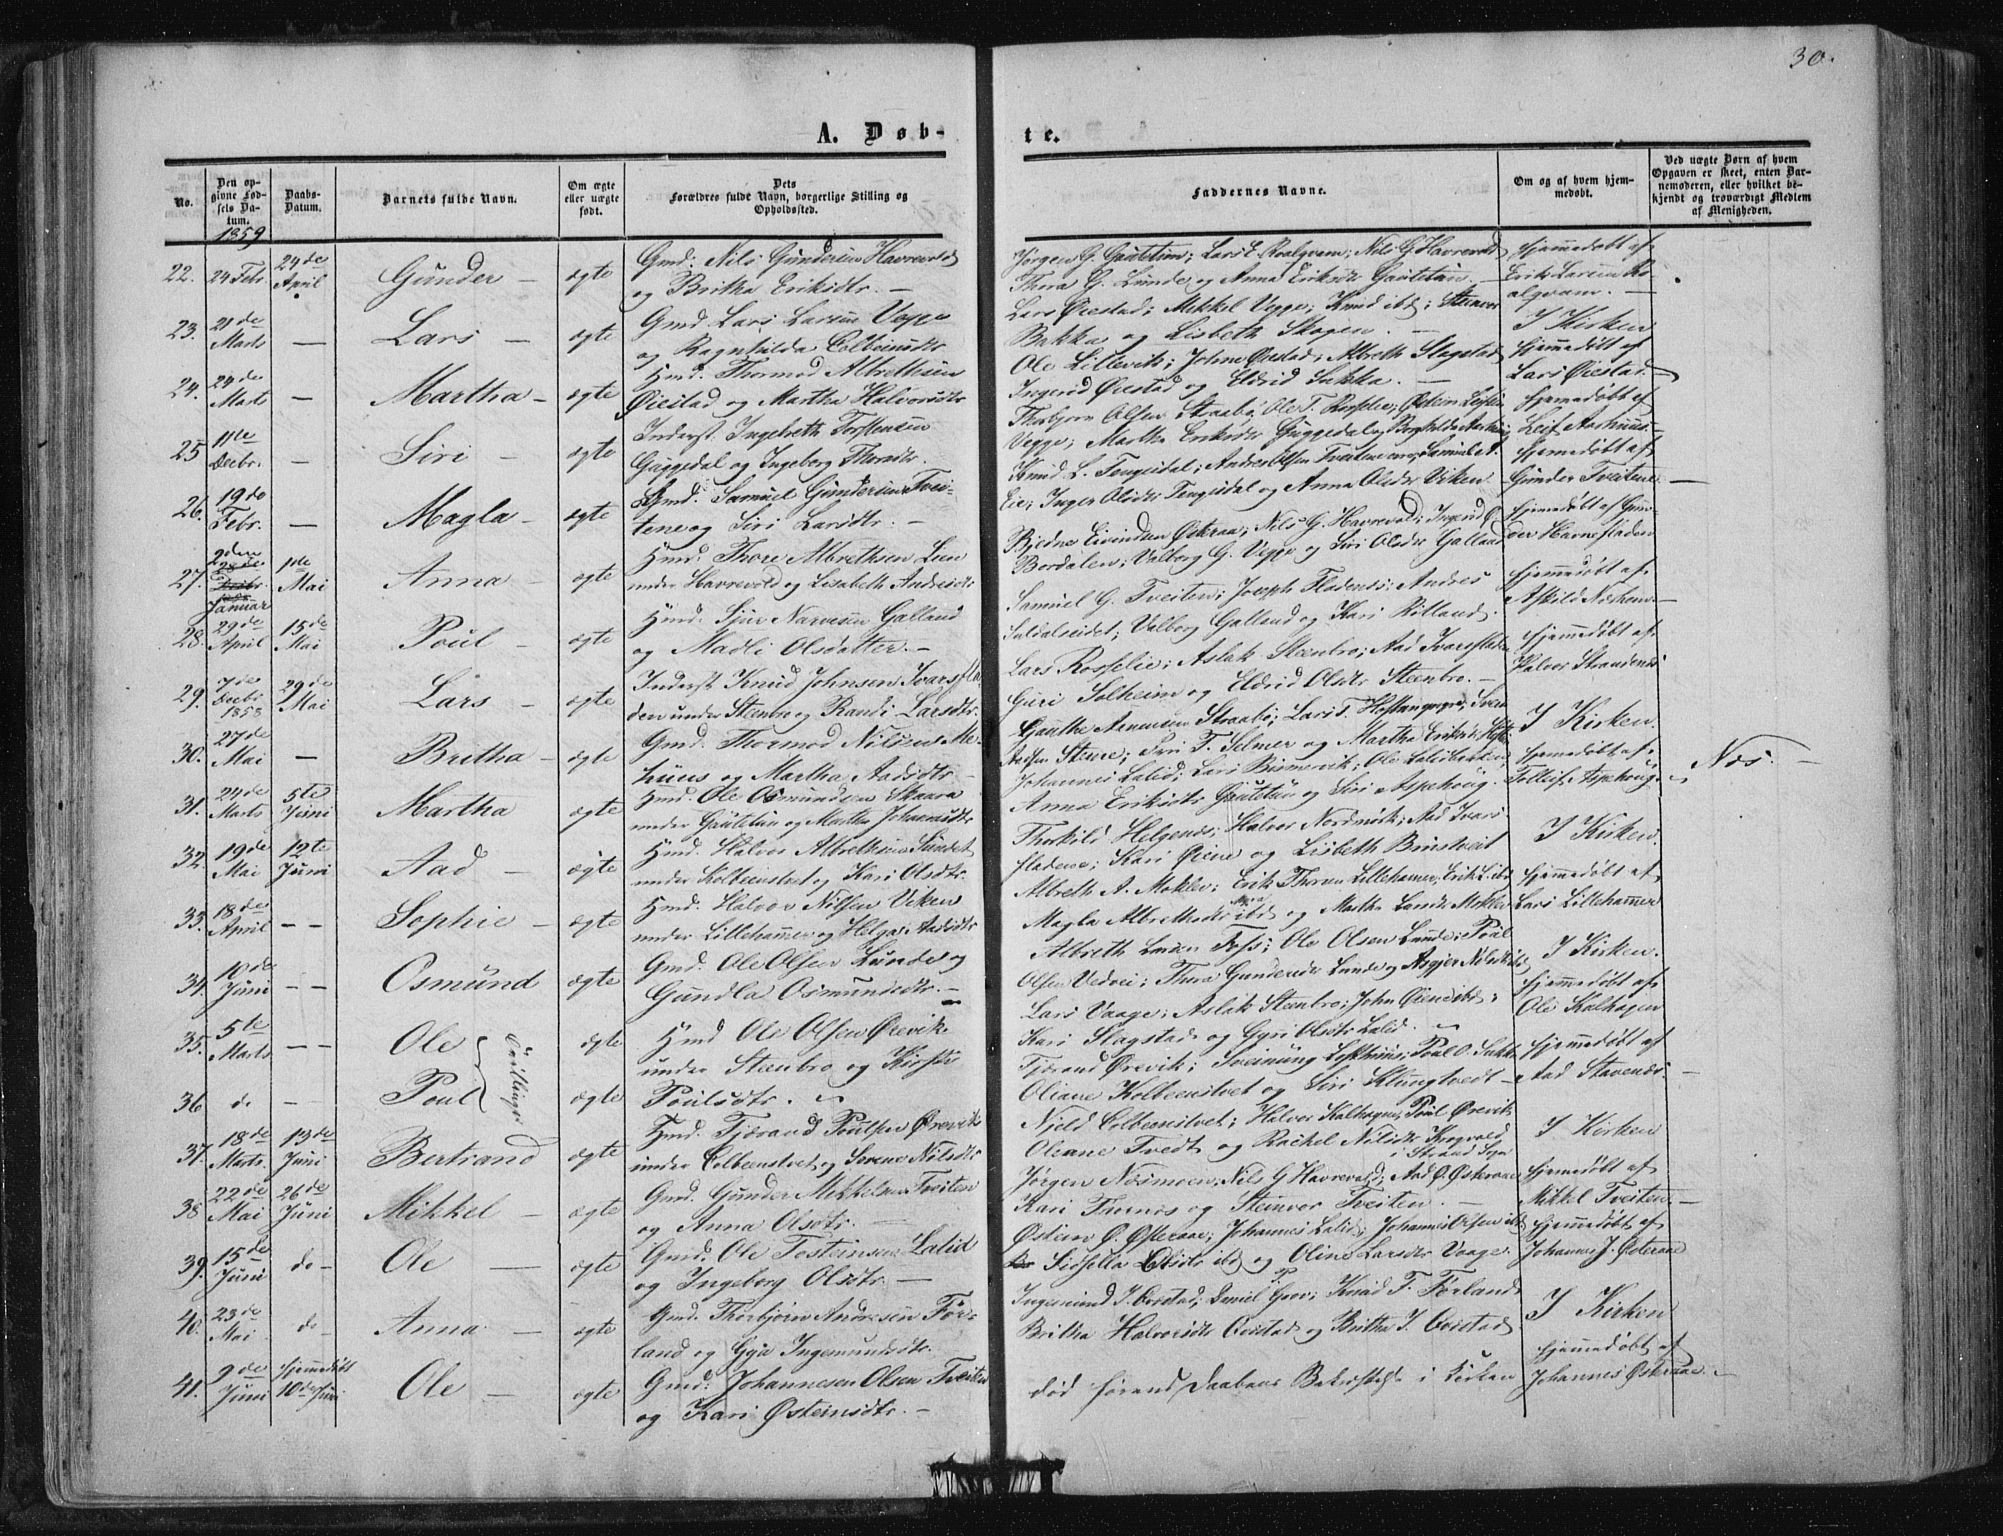 30.
A. Døb-
te.
No.
Den op-
givne Fød-
sels Da-
tum.
1859
Daabs-
Datum.
Barnets fulde Navn.
Om ægte
eller uægte
født.
Dets
Forældres fulde Navn, borgerlige Stilling og
Opholdssted.
Faddernes Navne.
Om og af hvem hjem-
medøbt.
Ved uægte Børn af hvem
Opgaven er skeet, enten Bar-
nemoderen, eller hvilket be-
kjendt og troværdigt Medlem
af Menigheden.
22. 24 Febr. 24de April Gunder – ægte
Gmd: Nils Gundersen Havrevold
og Britha Eriksdtr. –
Jørgen G. Gautetun; Lars E. Roalqvam; Nils G. Havrevold
Thora G. Lunde og Anna Eriksdtr Gautetun –
Hjemmedøbt af
Erik Larsen Ro-
alqvam. –
23. 21de Marts – Lars – ægte
Gmd Lars Larsen Vegge
og Ragnhilda Colbeinsdtr
Lars Øiestad; Mikkel Vegge; Knud ibd; Steinver
Bakka og Lisbeth Skogen. –
I Kirken
24. 24de Marts – Martha – ægte
Hmd. Thormod Albrethsen
Øiestad og Martha Halvorsdtr
Ole Lillevik; John Øiestad; Albreth Slagstad
Ingerid Øiestad og Eldrid Sukka. –
Hjemmedøbt af
Lars Øiestad –
25 11te Decbr. – Siri – ægte
Inderst. Ingebreth Torstensen
Guggedal og Ingeborg Thorsdtr.
Thorbjørn Olsen Straabø; Ole T. Rosselie;
Vegge; Martha Eriksdtr Guggedal og
Hjemmedøbt af
Leif Aarhuus –
26. 19de Febr. – Magla – ægte
Gmd. Samuel Gundersen Tvei-
tene og Siri Larsdtr. –
Knud L. Tengesdal; Andres Olsen
Eie; Inger Olsdtr Tengesdal og Anna Olsdtr Viken
Hjemmedøbt af
Gunder Tveitene –
27. 2den Januar 1ste Mai Anna – ægte
Hmd. Thore Albrethsen Lien
under Havrevold og Lisabeth Andresdtr
Eivindsen Østeraa; Nils G. Havrevold;
Bordalen; Valborg G. Vegge og Siri Olsdtr Galland
Hjemmedøbt af Gun-
der Havrestaden
28. 29de April 15de Mai Poul – ægte
Hmd. Sjur Narvesen Galland
og Madli Olsdatter. –
Samuel G. Tveiten; Joseph Fladenes; Andres
Suldalseidet; Valborg Galland og Kari Rølland.
Hjemmedøbt af
Askild Næshem –
29. 7de Decbr 1858 29de Mai Lars – ægte
Inderst Knud Johnsen Ivarsfla-
den under Steenbro og Randi Larsdtr.
Lars Rosselie; Aslak Steenbro; Aad Ivarsfladen
Guri Solheim og Eldrid Olsdtr Steenbro. –
Hjemmedøbt af
Halvor Strandenæs
30. 27de Mai – Britha – ægte
Gmd. Thormod Nilsen Me-
huus og Martha Aadsdtr –
Gauthe Straabø; Lars T.
Steine; T. Selmer og Martha Eriksdtr
I Kirken.
31. 24de Marts 5te Juni Martha ægte
Hmd. Ole Osmundsen Skaara
under Gautetun og Martha Johannesdtr
Johannes Lalid; Lars Bismervik; Ole Lalidbakken
Anna Eriksdtr Gautetun og Siri Aspehoug.
Hjemmedøbt af
Tollef Aspehoug –
Næs. –
32. 19de Mai 12te Juni Aad – ægte
Hmd. Halvor Albrethsen Sundet
under Kolbeenstvet og Kari Olsdtr.
Thorkild Helgenæs; Halvor Nordmork; Aad Ivars-
fladene; Kari Øiene og Lisbeth Binstveit
I Kirken.
33. 18de April – – Sophie – ægte
Hmd. Halvor Nilsen Viken
under Lillehammer og Helga Aadsdtr
Albreth A. Moklev; Erik Thorsen Lillehamer; Erik L. ibd
Magla Albrethsdtr ibd og Martha Larsdtr Moklev
Hjemmedøbt af
Lars Lillehammer
34. 10de Juni – – Osmund – ægte
Gmd. Ole Olsen Lunde og
Gundla Osmundsdtr. –
Albreth Larsen Foss; Ole Olsen Lunde; Poul
Olsen Vedvei; Thora Gundersdtr Lunde og Asgjer Nilsdtr ibd
I Kirken.
35. 5te Marts – – Ole Tvillinger ægte
Hmd Ole Olsen Ørevik
under Steenbro og Kirsti
Lars Vaage; Aslak Steenbro; John Øiene ibd;
Kari Slagstad og Gyri Olsdtr Lalid.
Hjemmedøbt af
Ole Kalhagen
36 do – Poul ægte
Poulsdtr.
Tjærand Ørevik; Sveinung Poul O. Sukka
Oliane Kolbeenstvet og Siri Klungtvedt –
Hjemmedøbt af
Aad Stavenæs. –
37. 18de Marts 13de Juni Bertrand ægte
Hmd. Tjærand Poulsen Ørevik
under Colbeenstvet og Serene Nilsdtr
Njeld Colbeenstvet; Halvor Kalhagen; Poul Ørevik
Oleane Tvedt og Rachel Nilsdtr Krogvold
i Strand Sgn
I Kirken
38 22de Mai 26de Juni Mikkel – ægte
Gmd. Gunder Mikkelsen Tveiten
og Anna Olsdtr. –
Jørgen Næsmoen; Nils G Havrevold; Aad Ø. Østeraae
Kari Thornes og Steinver Tveiten. –
Hjemmedøbt af
Mikkel Tveiten. –
39. 15de Juni do – Ole – ægte
Gmd. Ole Tosteinsen Lalid
og Ingeborg Olsdtr. –
Østein Ø. Østeraae; Johannes Lalid; Johannes Olsen ibd
Sidsella Olsdtr ibd og Oline Larsdtr Vaage.
Hjemmedøbt af
Johannes J. Østeraae
40. 23de Mai do – Anna – ægte
Gmd. Thorbjørn Andresen Før-
land og Gyri Ingemundsdtr.
Ingemund T. Qvistad; Daniel Grov; Knud T. Førland
Britha Halvorsdtr Qvistad og Britha I. Qvistad
I Kirken
41. 9de Juni Hjemmedøbt 10de Juni Ole – ægte
Gmd: Johannesen Olsen Tveiten
og Kari Østeinsdtr. –
død førend Daabens Bekræftelse i Kirken
Hjemmedøbt af
Johannes Østeraae. –